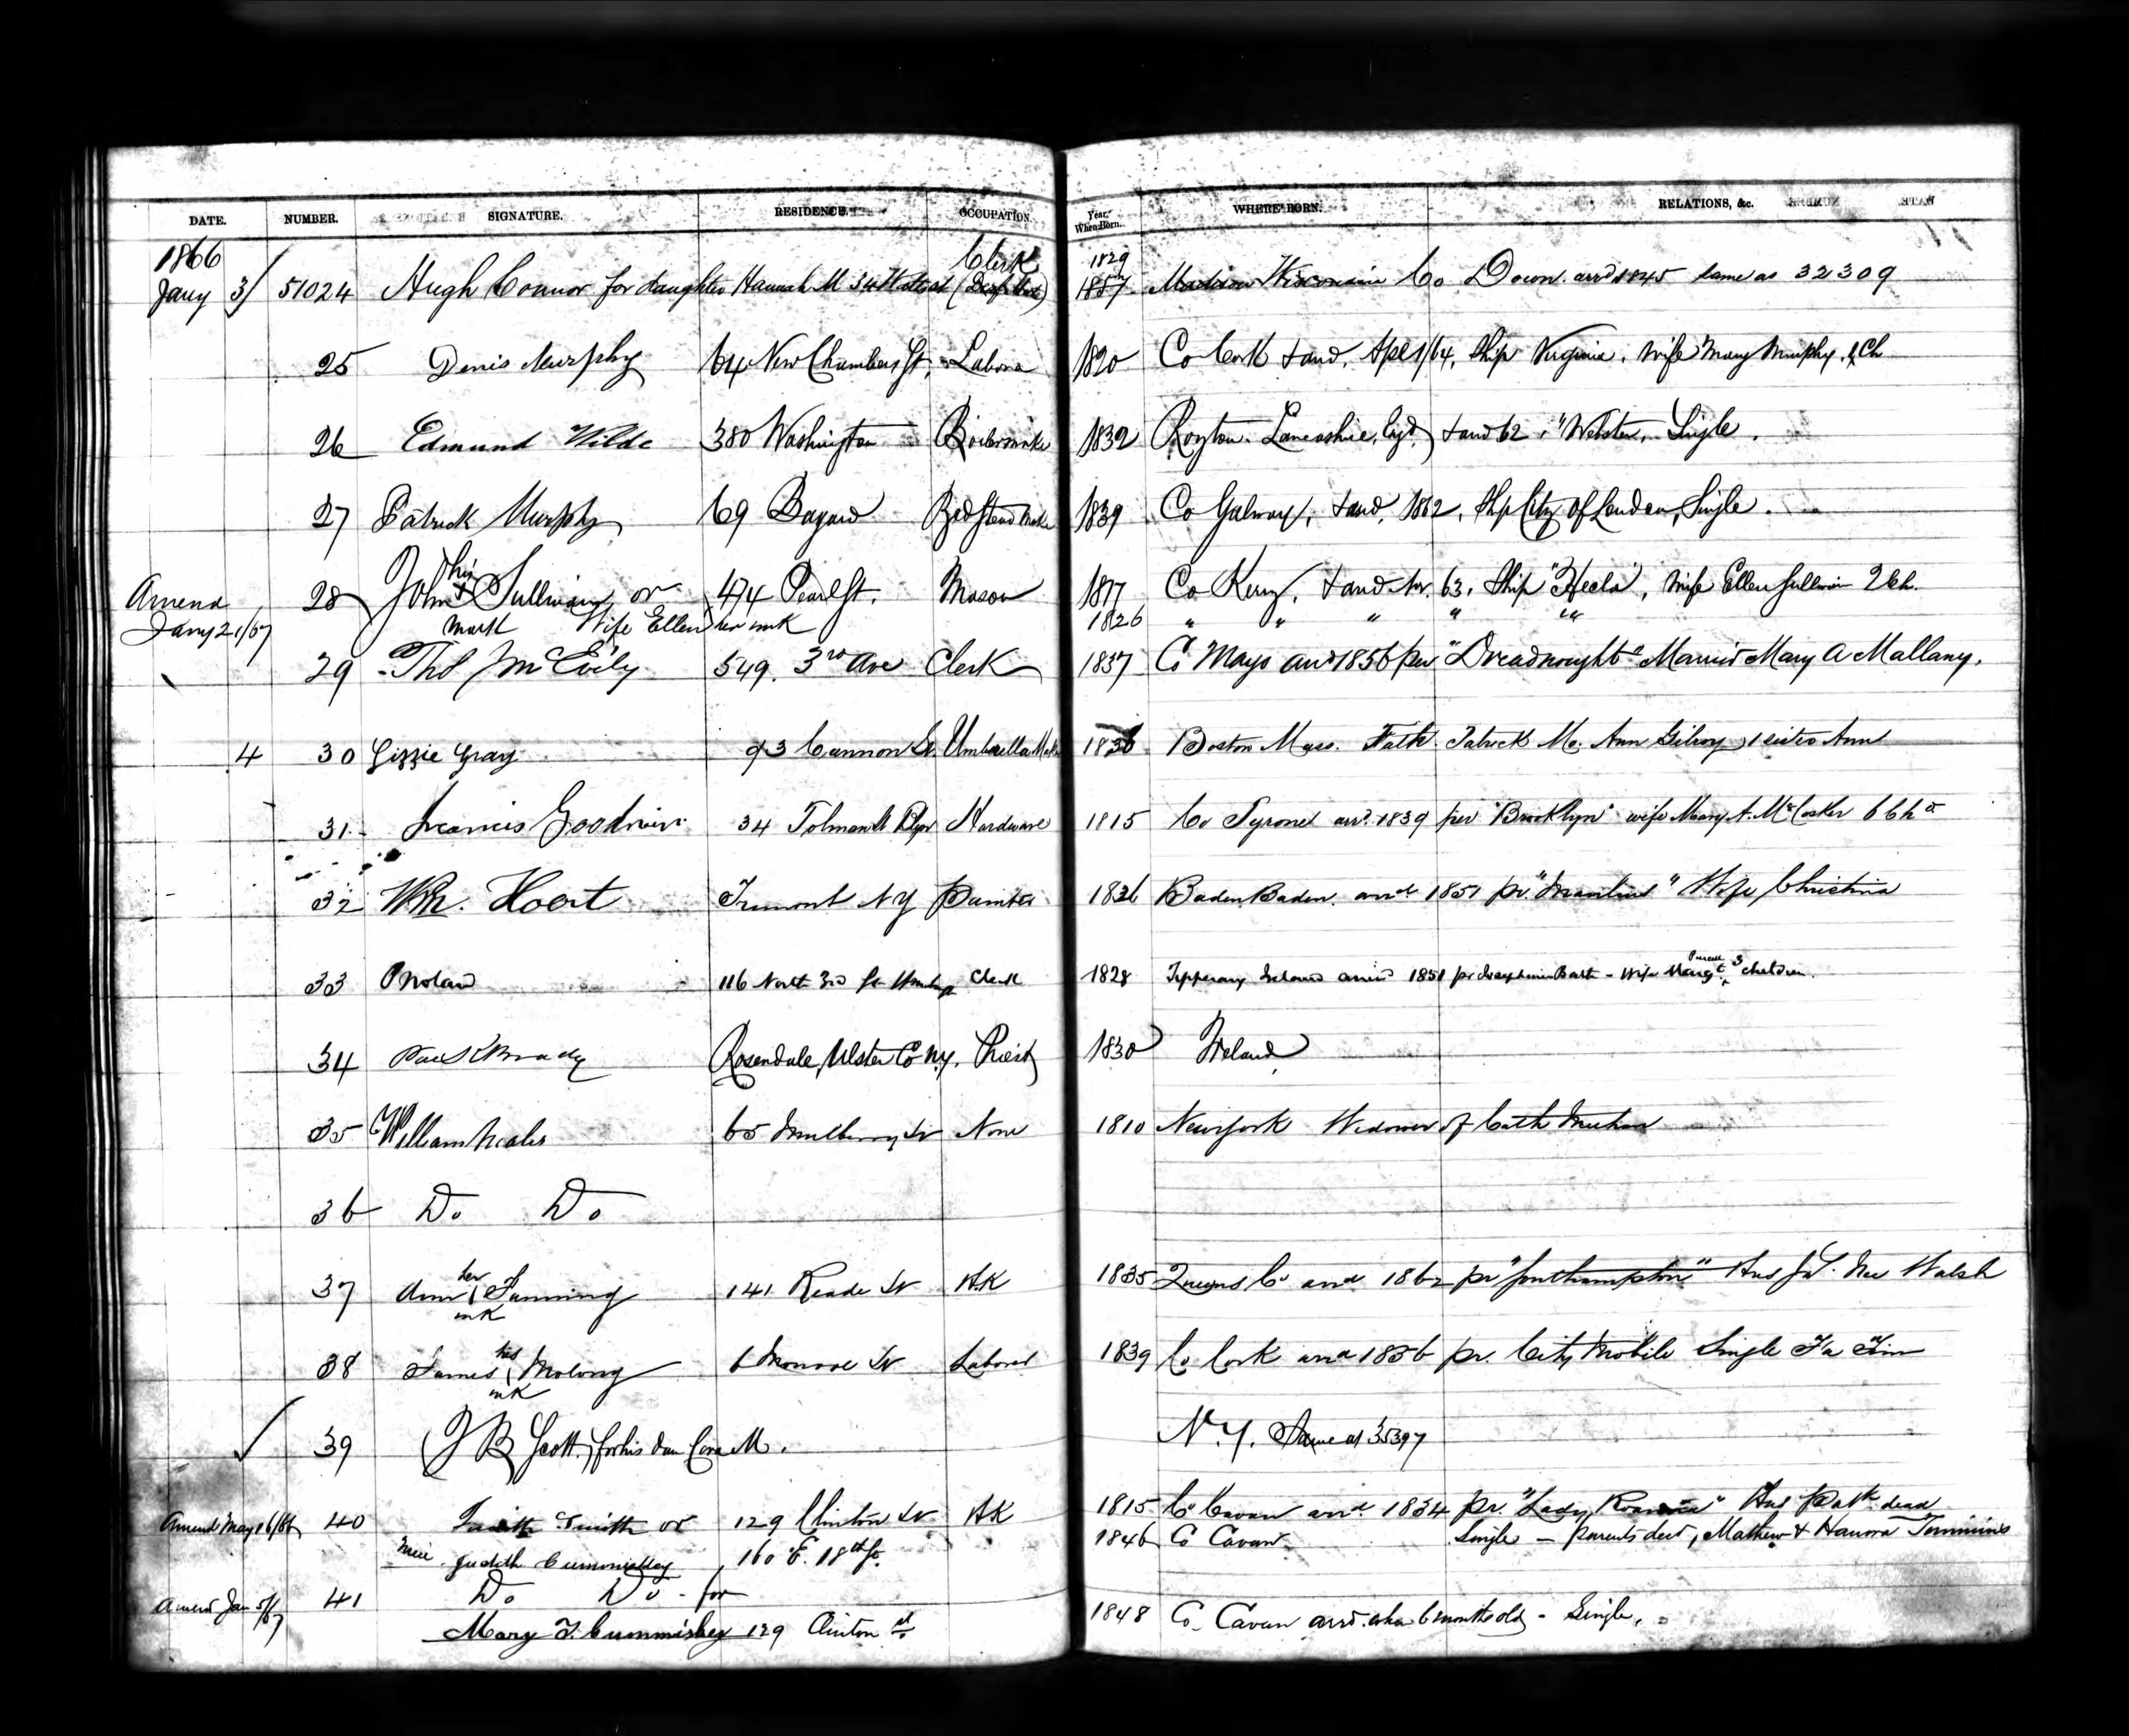 DATE. NUMBER. SIGNATURE. RESIDENCE. OCCUPATION. Year When Born. WHERE BORN. RELATIONS, &c.
1866 Clerk 1829
Jany 3/ 51024 Hugh Connor for daughter Hannah M 34th street (Deaf Mute) 1857 Madison Wisconsin Co Down. arrd 1845 Same as 32309
25 Denis Murphy 64 New Chambers St, Labora 1820 Co Cork Land, Apl 1/64, Ship Virginia, Wife Mary Murphy, Ch
26 Edmund Wilde 380 Washington Boilermake 1832 Royton. Lancashire, Eng. Land 62, "Webster, Single.
27 Patrick Murphy 69 Bayard Bedstead Make 1839 Co Galway, Land, 1862, Ship City Of London, Single.
Amend 28 John his Sullivan or 474 Pearl St. Mason 1817 Co Kerry, Land Nr. 63, Ship "Hecla", Wife Ellen Sullivan 2 Ch.
Jany 21/67 mark Wife Ellen her mk 1826 " " " " "
29 Ths McEvily 549. 3rd Ave Clerk 1837 Co Mayo arrd 1856 per "Dreadnought" Married Mary A Mallany.
4 30 Lizzie Gray 93 Cannon St. Umbrella Maker 1836 Boston Mass. Fath. Patrick Mo. Ann Gilroy, 1 sister Ann
31. Francis Goodwin 34 Hardware 1815 Co Tyrone arrd. 1839 per "Brooklyn" wife Mary A. McCosker 6 Chn
32 Wm. Tremont NY Painter 1826 Baden Baden. arrd 1851 pr. Wife Christina
33 P Nolan 116 North 3rd St Wmburgh Clerk 1828 Tipperary Ireland arrivd 1851 pr Josephine - Wife Margt Purcell 3 children.
34 Brady Rosendale, Ulster Co N.Y. Priest 1830 Ireland
35 William 65 Mulberry St None 1810 New York Widower of Cath Meehan
36 Do Do
37 Ann her Fanning 141 Reade St HK 1835 Queens Co arrd 1862 pr "Southampton" Hus Jas. Nee Walsh
mk
38 James his Molony 6 Monroe St Laborer 1839 Co Cork arrd 1856 pr. City Mobile Single Fa Tim
mk
39 J B Scott, for his dau Cora M. N.Y. Same as 35397
Amend May 16/86 40 Smith or 129 Clinton St HK 1815 Co Cavan arrd. 1834 pr. "Lady Hus Patk dead
Judith Cummiskey 160 E. 18th St. 1846 Co Cavan Single - parents dead, Mathew & Hanora
Amend Jan 5/67 41 Do Do - for
Mary T. Cummiskey 129 Clinton st. 1848 Co. Cavan arrd. when 6 months old - Single.